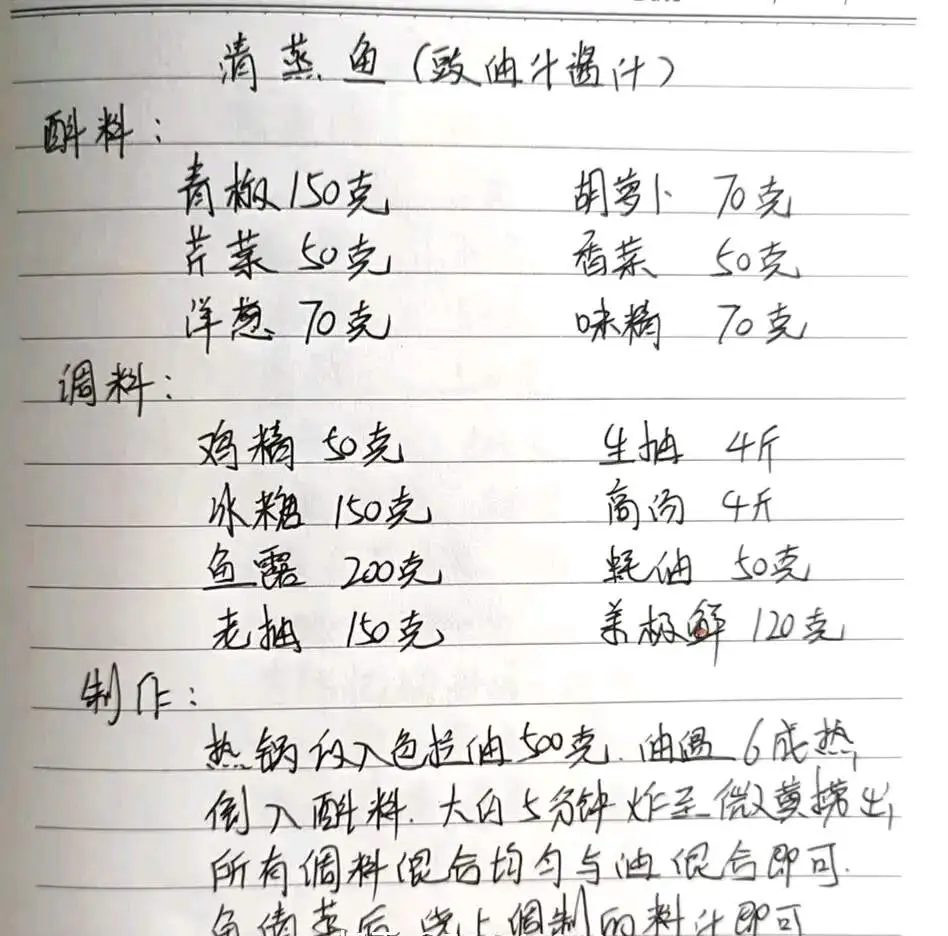 清蒸鱼（豉油汁酱汁）
酙料：
青椒150克 胡萝卜 70克
芹菜 50克 香菜 50克
洋葱 70克 味精 70克
调料：
鸡精 50克 生抽 4斤
冰糖 150克 高汤 4斤
鱼露 200克 蚝油 50克
老抽 150克 美极鲜 120克
制作：
热锅放入色拉油500克.油温6成热,
倒入酙料.大约5分钟炸至微黄捞出,
所有调料混合均匀与油混合即可.
鱼清蒸后浇上调制的料汁即可